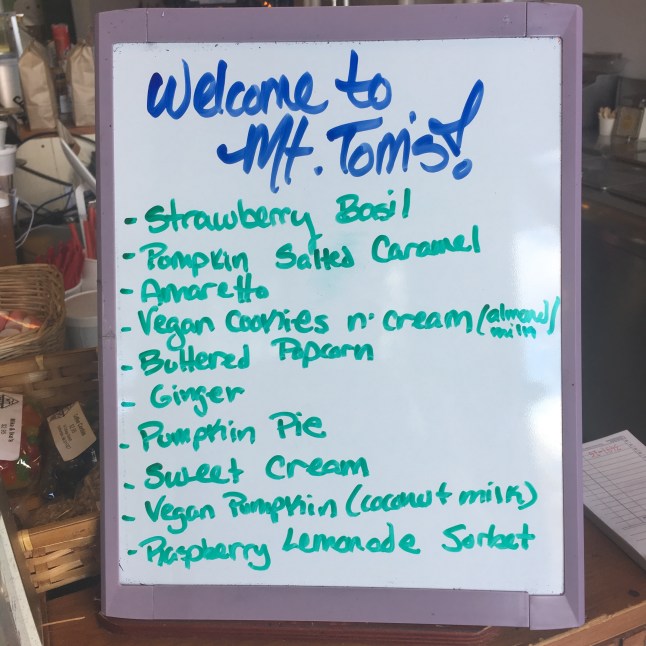 Welcome to
Mt. Tom's!
- Strawberry Basil
- Pumpkin Salted Caramel
- Amaretto
- Vegan Cookies n' Cream (almond milk)
- Buttered Popcorn
- Ginger
- Pumpkin Pie
- Sweet Cream
- Vegan Pumpkin (coconut milk)
- Raspberry Lemonade Sorbet